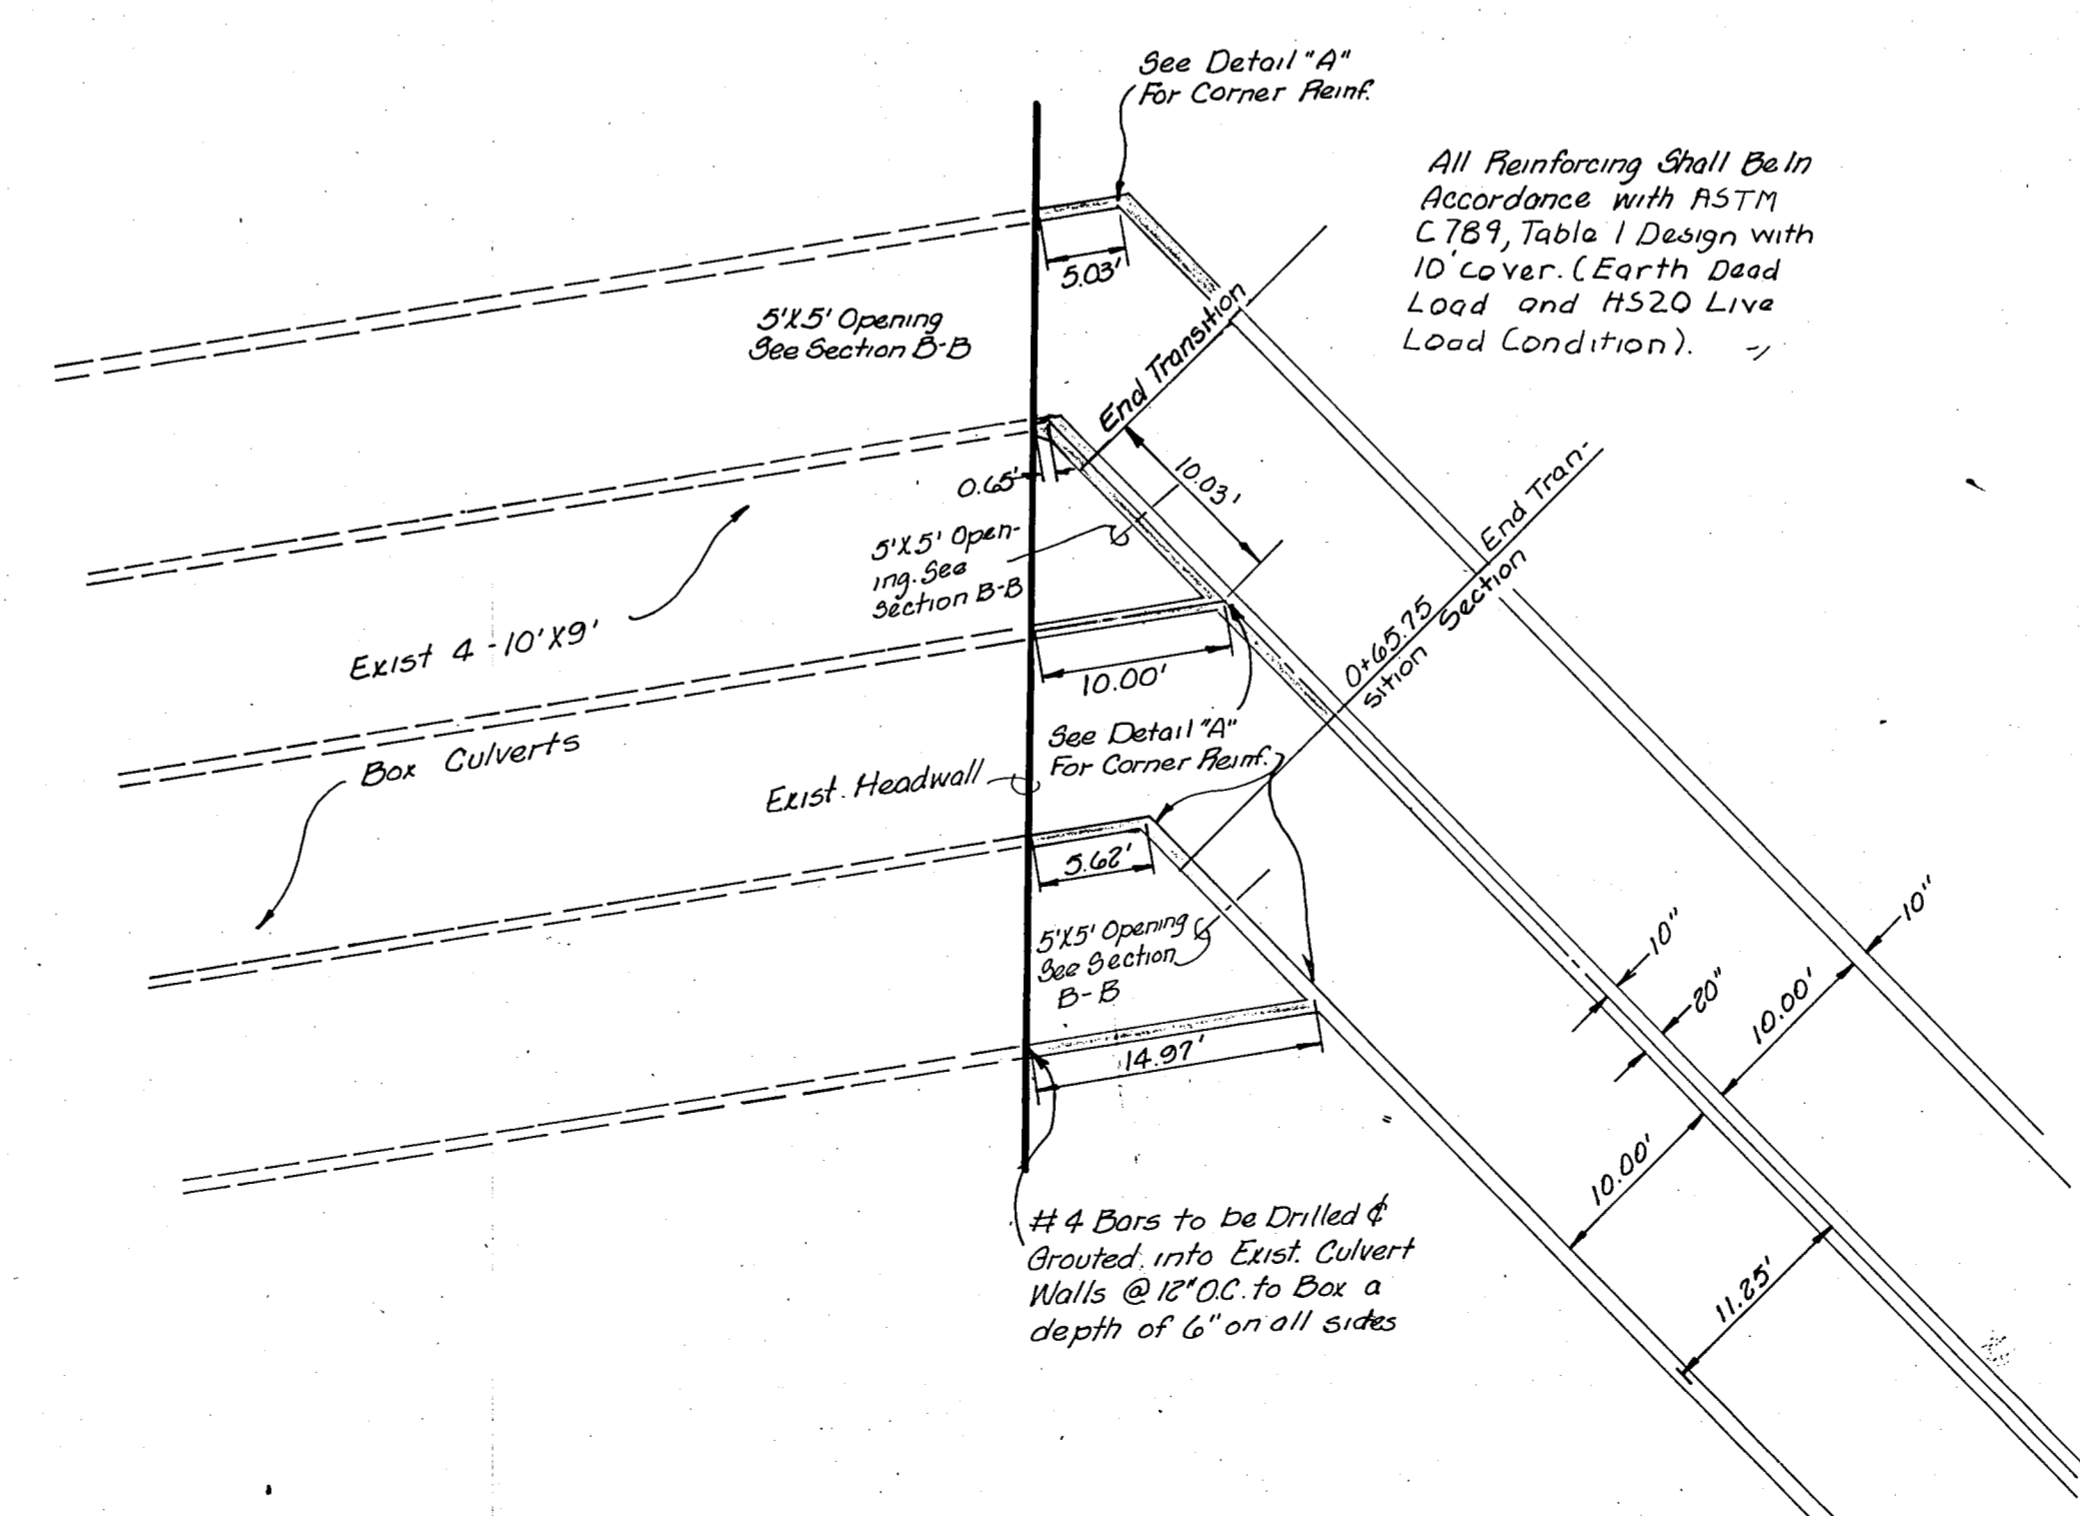 See Detail "A"
For Corner Reinf.
All Reinforcing Shall Be In
Accordance with ASTM
C789, Table 1 Design with
10' Cover. (Earth Dead
Load and HS20 Live
Load Condition).
5.03'
5'X5' Opening
See Section B-B
End Transition
10.03'
0.65'
5'X5' Open-
ing. See
Section B-B
End Tran-
sition Section
0+65.75
Exist 4-10'X9'
Box Culverts
10.00'
See Detail "A"
For Corner Reinf.
Exist. Headwall
5.62'
5'X5' Opening
See Section
B-B
14.97'
10"
10"
20"
10.00'
10.00'
11.25'
#4 Bars to be Drilled &
Grouted into Exist. Culvert
Walls @ 12" O.C. to Box a
depth of 6" on all sides